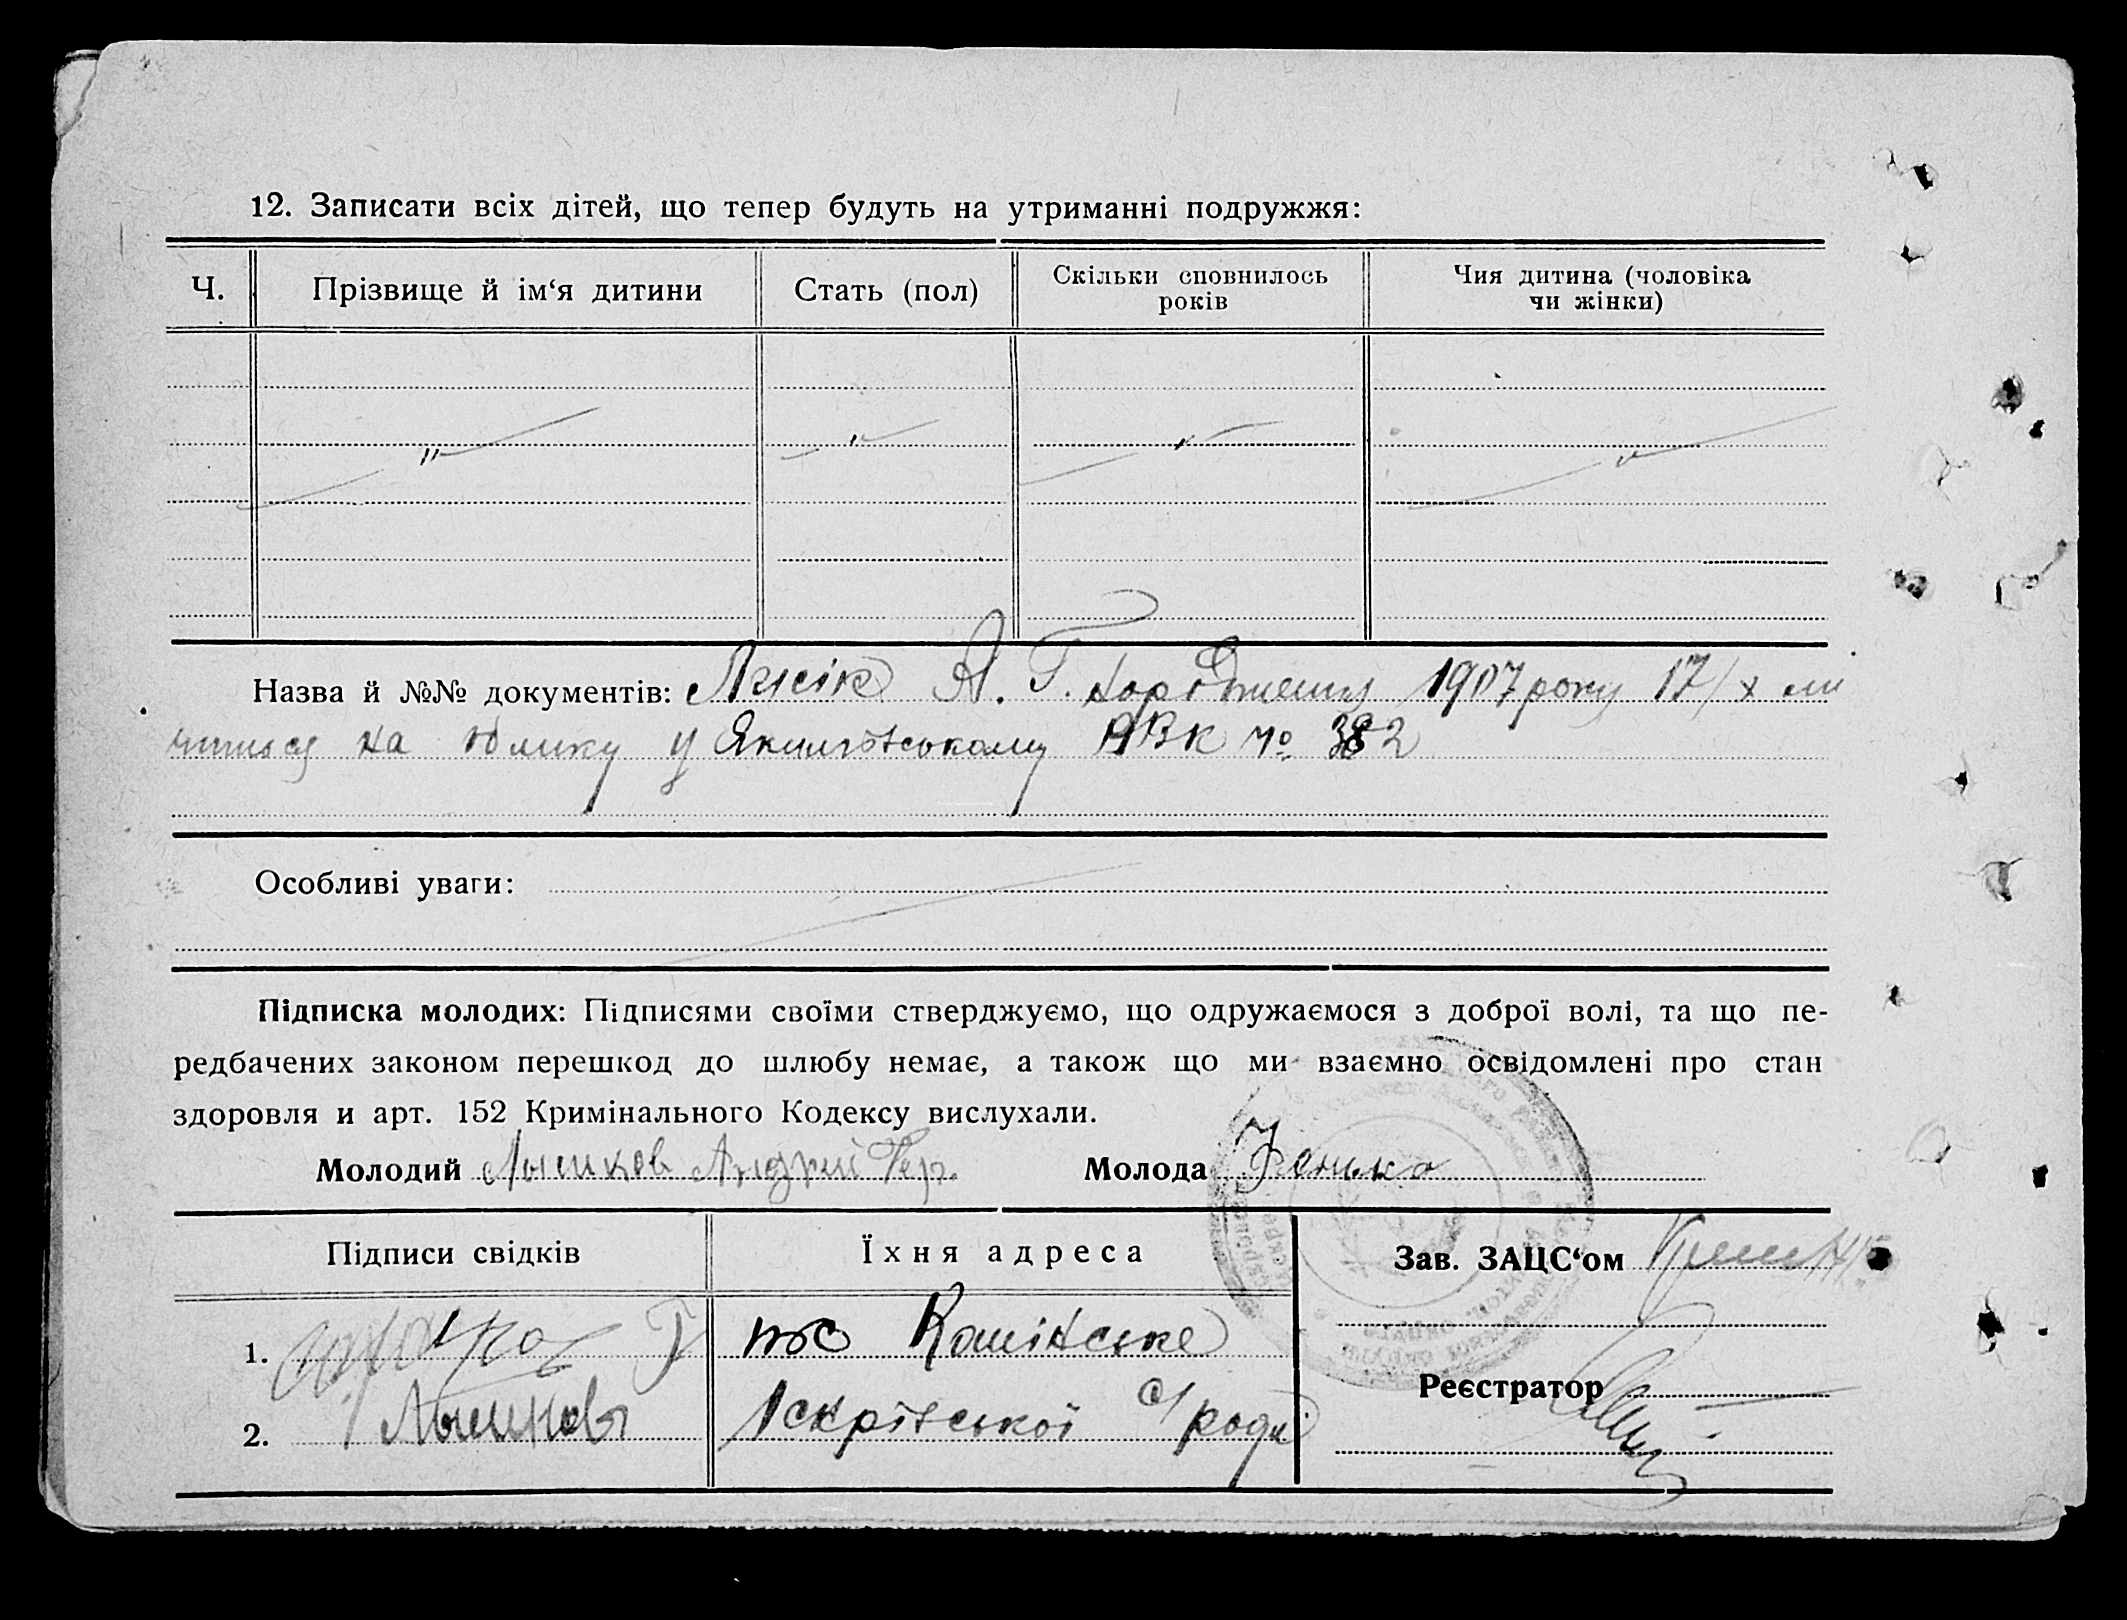 12. Записати всіх дітей, що тепер будуть на утриманні подружжя:
Ч.
Прізвище й ім‘я дитини
Стать (пол)
Скільки сповнилось
років
Чия дитина (чоловіка
чи жінки)
Назва й №№ документів: Лисік А. Г. народження 1907 року 17/X
на обліку у АВК № 382
Особливі уваги:
Підписка молодих: Підписями своїми стверджуємо, що одружаємося з доброї волі, та що пе-
редбачених законом перешкод до шлюбу немає, а також що ми взаємно освідомлені про стан
здоровля и арт. 152 Кримінального Кодексу вислухали.
Молодий Лысиков Андрий Гер.
Молода Фенько
Підписи свідків
Їхня адреса
Зав. ЗАЦС‘ом
1.
Камінське
Реєстратор
2. Лысиков
Іскрівської с/ради